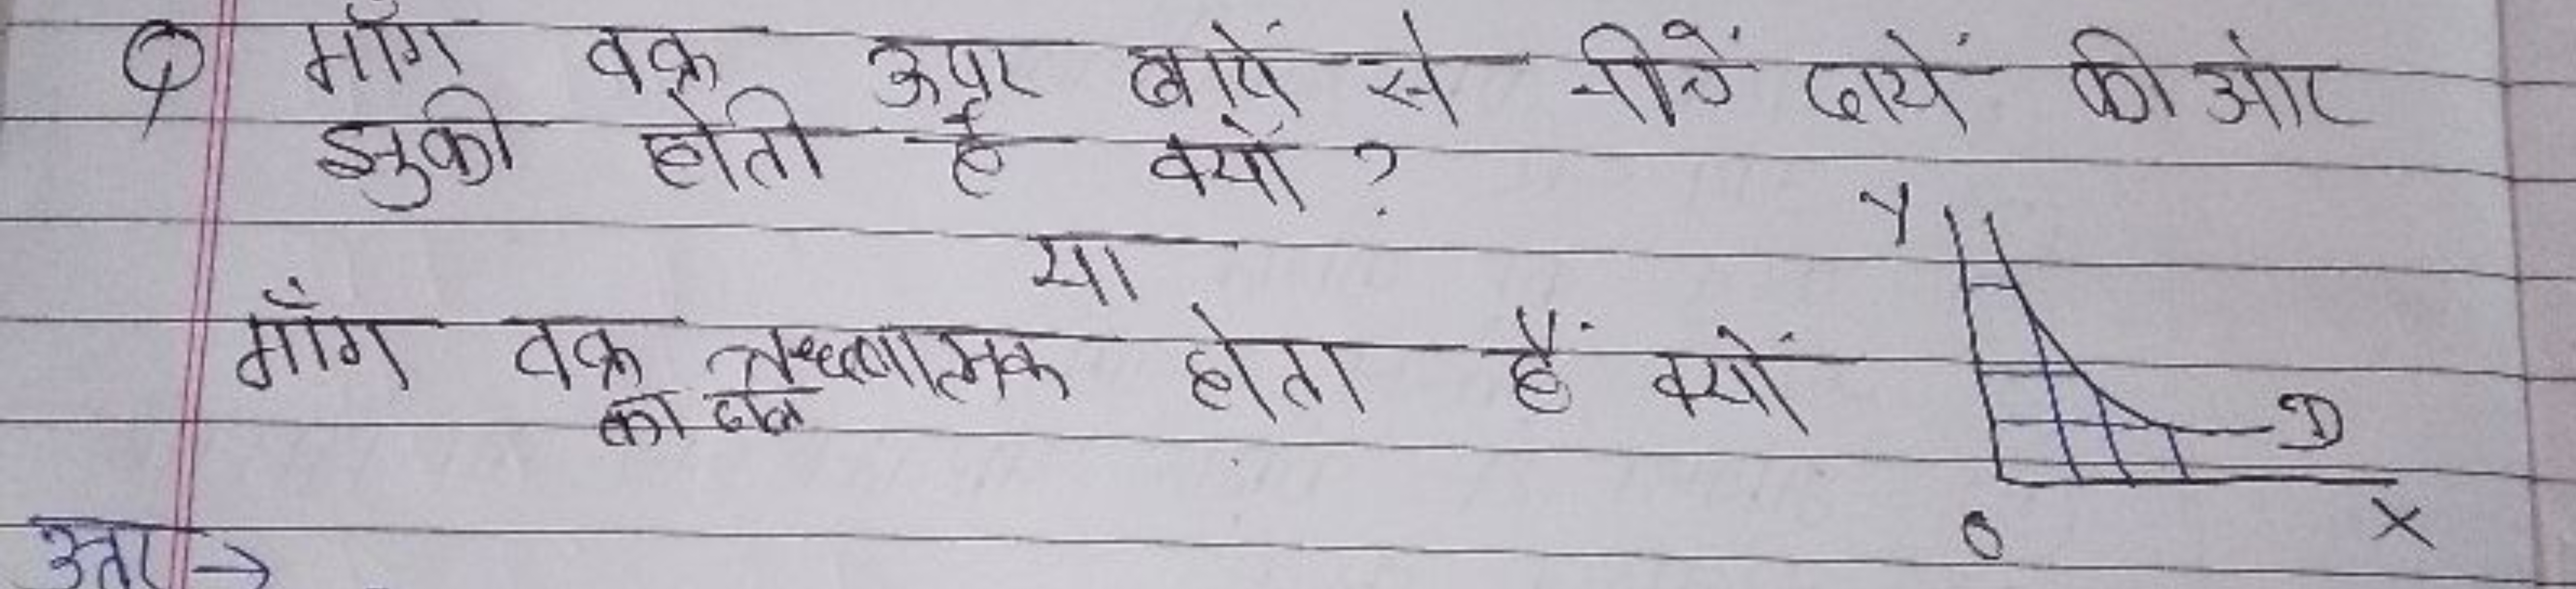 Q माँग वक्र ऊपर बायें से नीचें दायें की ओर
झुकी होती है क्यों ?
या
माँग वक्र का ढाल ऋणात्मक होता हैं क्यों
Y
D
O
X
उत्तर →